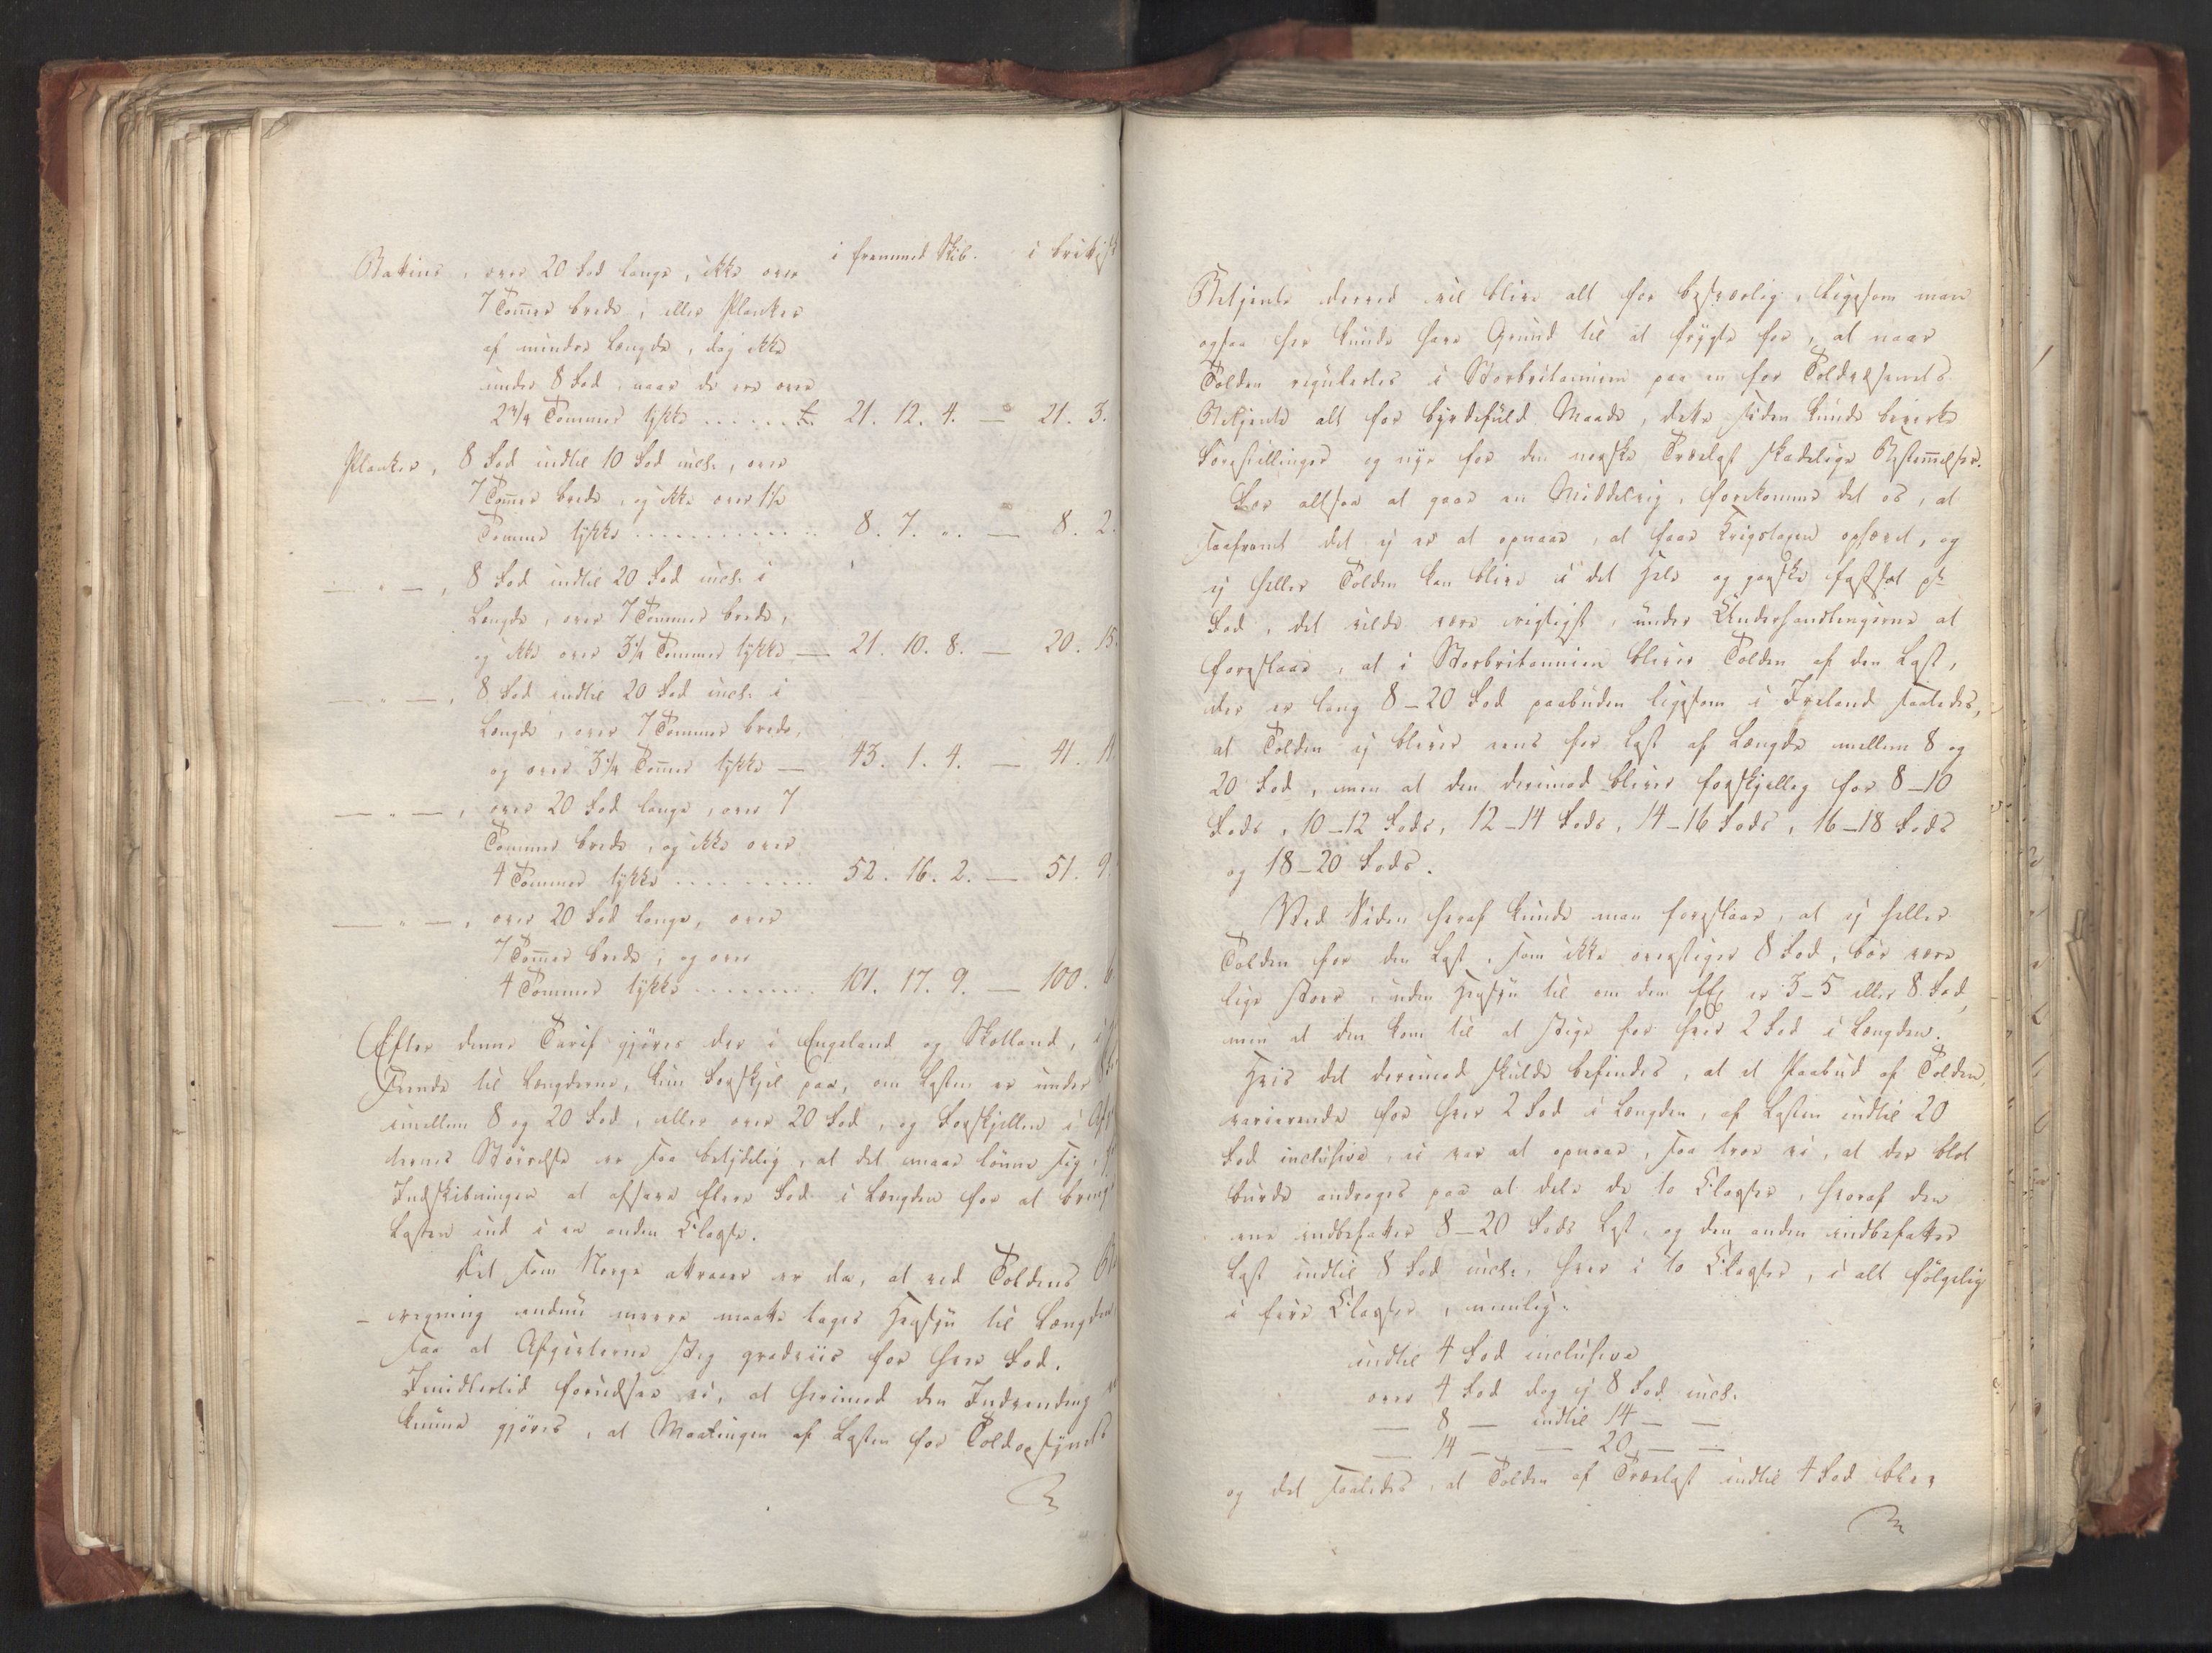 i fremmed Skib. i britisk
Battins, over 20 Fod lange, ikke over
7 Tom̅er brede, eller Planker
af mindre Længde, dog ikke
under 8 Fod, naar de ere over
2 3/4 Tommer tykke ...... £. 21. 12. 4. — 21. 3.
Planker, 8 Fod indtil 10 Fod incl:, over
7 Tom̅er brede, og ikke over 1 1/2
Tommer tykke ............ 8. 7. „. — 8. 2.
— „ —, 8 Fod indtil 20 Fod incl: i
Længde, over 7 Tommer brede,
og ikke over 3 1/4 Tommer tykke — 21. 10. 8. — 20. 15.
— „ —, 8 Fod indtil 20 Fod incl: i
Længde, over 7 Tommer brede,
og over 3 1/4 Tom̅er tykke — 43. 1. 4. — 41. 11
— „ —, over 20 Fod lange, over 7
Tommer brede, og ikke over
4 Tommer tykke ......... 52. 16. 2. — 51. 9.
— „ —, over 20 Fod lange, over
7 Tom̅er brede, og over
4 Tommer tykke ........ 101. 17. 9. — 100. 6
Efter denne Tarif gjøres der i Engeland og Skotland, i
seende til Længderne, kun Forskjel paa, om Lasten er under
imellem 8 og 20 Fod, eller over 20 Fod, og Forskjellen i
ternes Størrelse er saa betydelig, at det maae lønne sig,
Indskibningen at afskære flere Fod i Længden for at bringe
Lasten ind i en anden Classe.
Det som Norge attraaer er da, at ved Toldens
regning endnu meere maatte tages Hensyn til Længden
saa at Afgivterne steg gradviis for hver Fod.
Imidlertid forudsee vi, at herimod den Indvending
kunne gjøres, at Maalingen af Lasten for Toldopsynets
Betjente derved vil blive alt for besværlig, ligesom man
ogsaa her kunde have Grund til at frygte for, at naar
Tolden reguleres i Storbritannien paa en for Toldvæsenets
Betjente alt for byrdefuld Maade, dette siden kunde bevirke
Forestillinger og nye for den norske Trælast skadelige Bestem̅elser.
For altsaa at gaae en Middelvej, forekommer det os, at
saafremt det ej er at opnaae, at faae Krigstaxen ophævet, og
ej heller Tolden kan blive i det Hele og ganske fastsat pr
Fod, det vilde være rigtigst, under Underhandlingerne at
foreslaae, at i Storbritannien bliver Tolden af den Last,
der er lang 8–20 Fod paabuden ligesom i Irland saaledes,
at Tolden ej bliver eens for Last af Længde mellem 8 og
20 Fod, men at den derimod bliver forskjellig for 8–10
Fods, 10–12 Fods, 12–14 Fods, 14–16 Fods, 16–18 Fods
og 18–20 Fods.
Ved Siden heraf kunde man foreslaae, at ej heller
Tolden for den Last, som ikke overstiger 8 Fod, bør være
lige stor, uden Hensyn til om den f Ex er 3–5 eller 8 Fod,
men at den kom til at stige for hver 2 Fod i Længden.
Hvis det derimod skulde befindes, at et Paabud af Tolden,
varierende for hver 2 Fod i Længden, af Lasten indtil 20
Fod inclusive, ei var at opnaae, saa troe vi, at der blot
burde andrages paa at dele de to Classer, hvoraf den
ene indbefatter 8–20 Fods Last, og den anden indbefatter
Last indtil 8 Fod incl:, hver i to Classer, i alt følgelig
i fire Classer, nemlig:
indtil 4 Fod inclusive
over 4 Fod dog ej 8 Fod incl:
— 8 — indtil 14 — —
— 14 — — 20 — —
og det saaledes, at Tolden af Trælast indtil 4 Fod blev